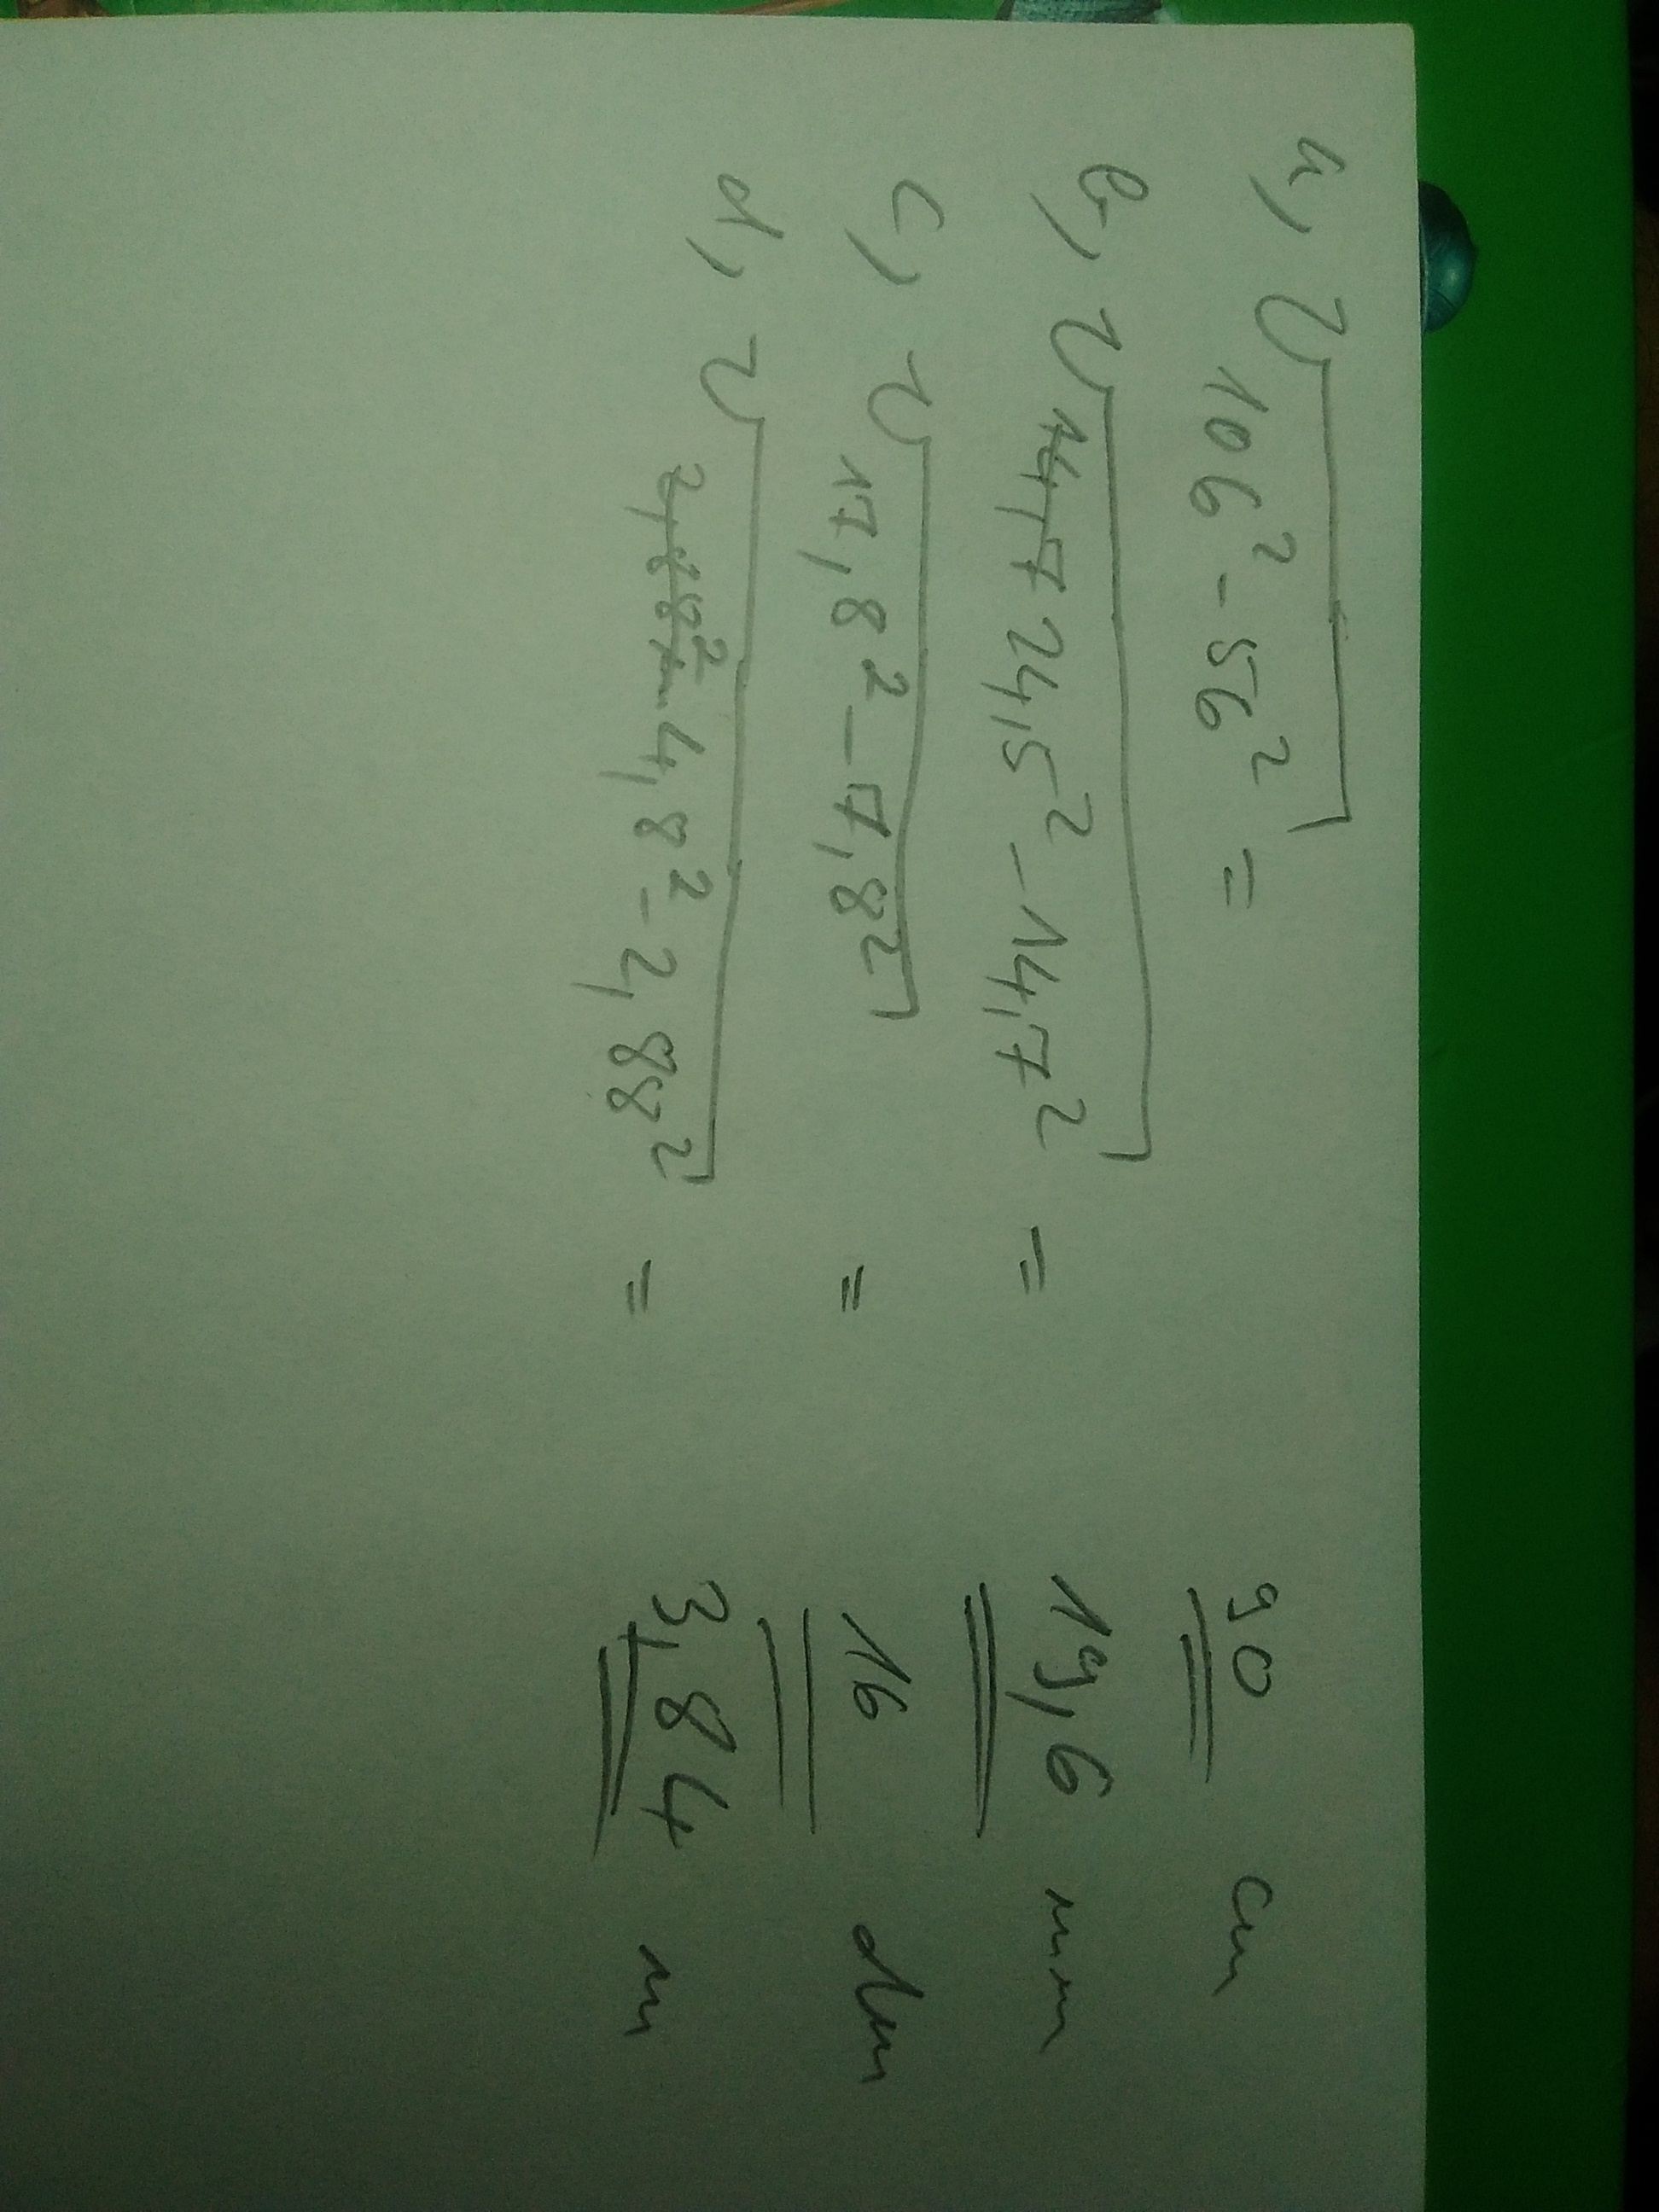 a, √106² - 56² = 90 cm
b, √14,7 24,5² - 14,7² = 19,6 mm
c, √17,8² - 7,8² = 16 dm
d, √2,88² - 4,8² - 2,88² = 3,84 m